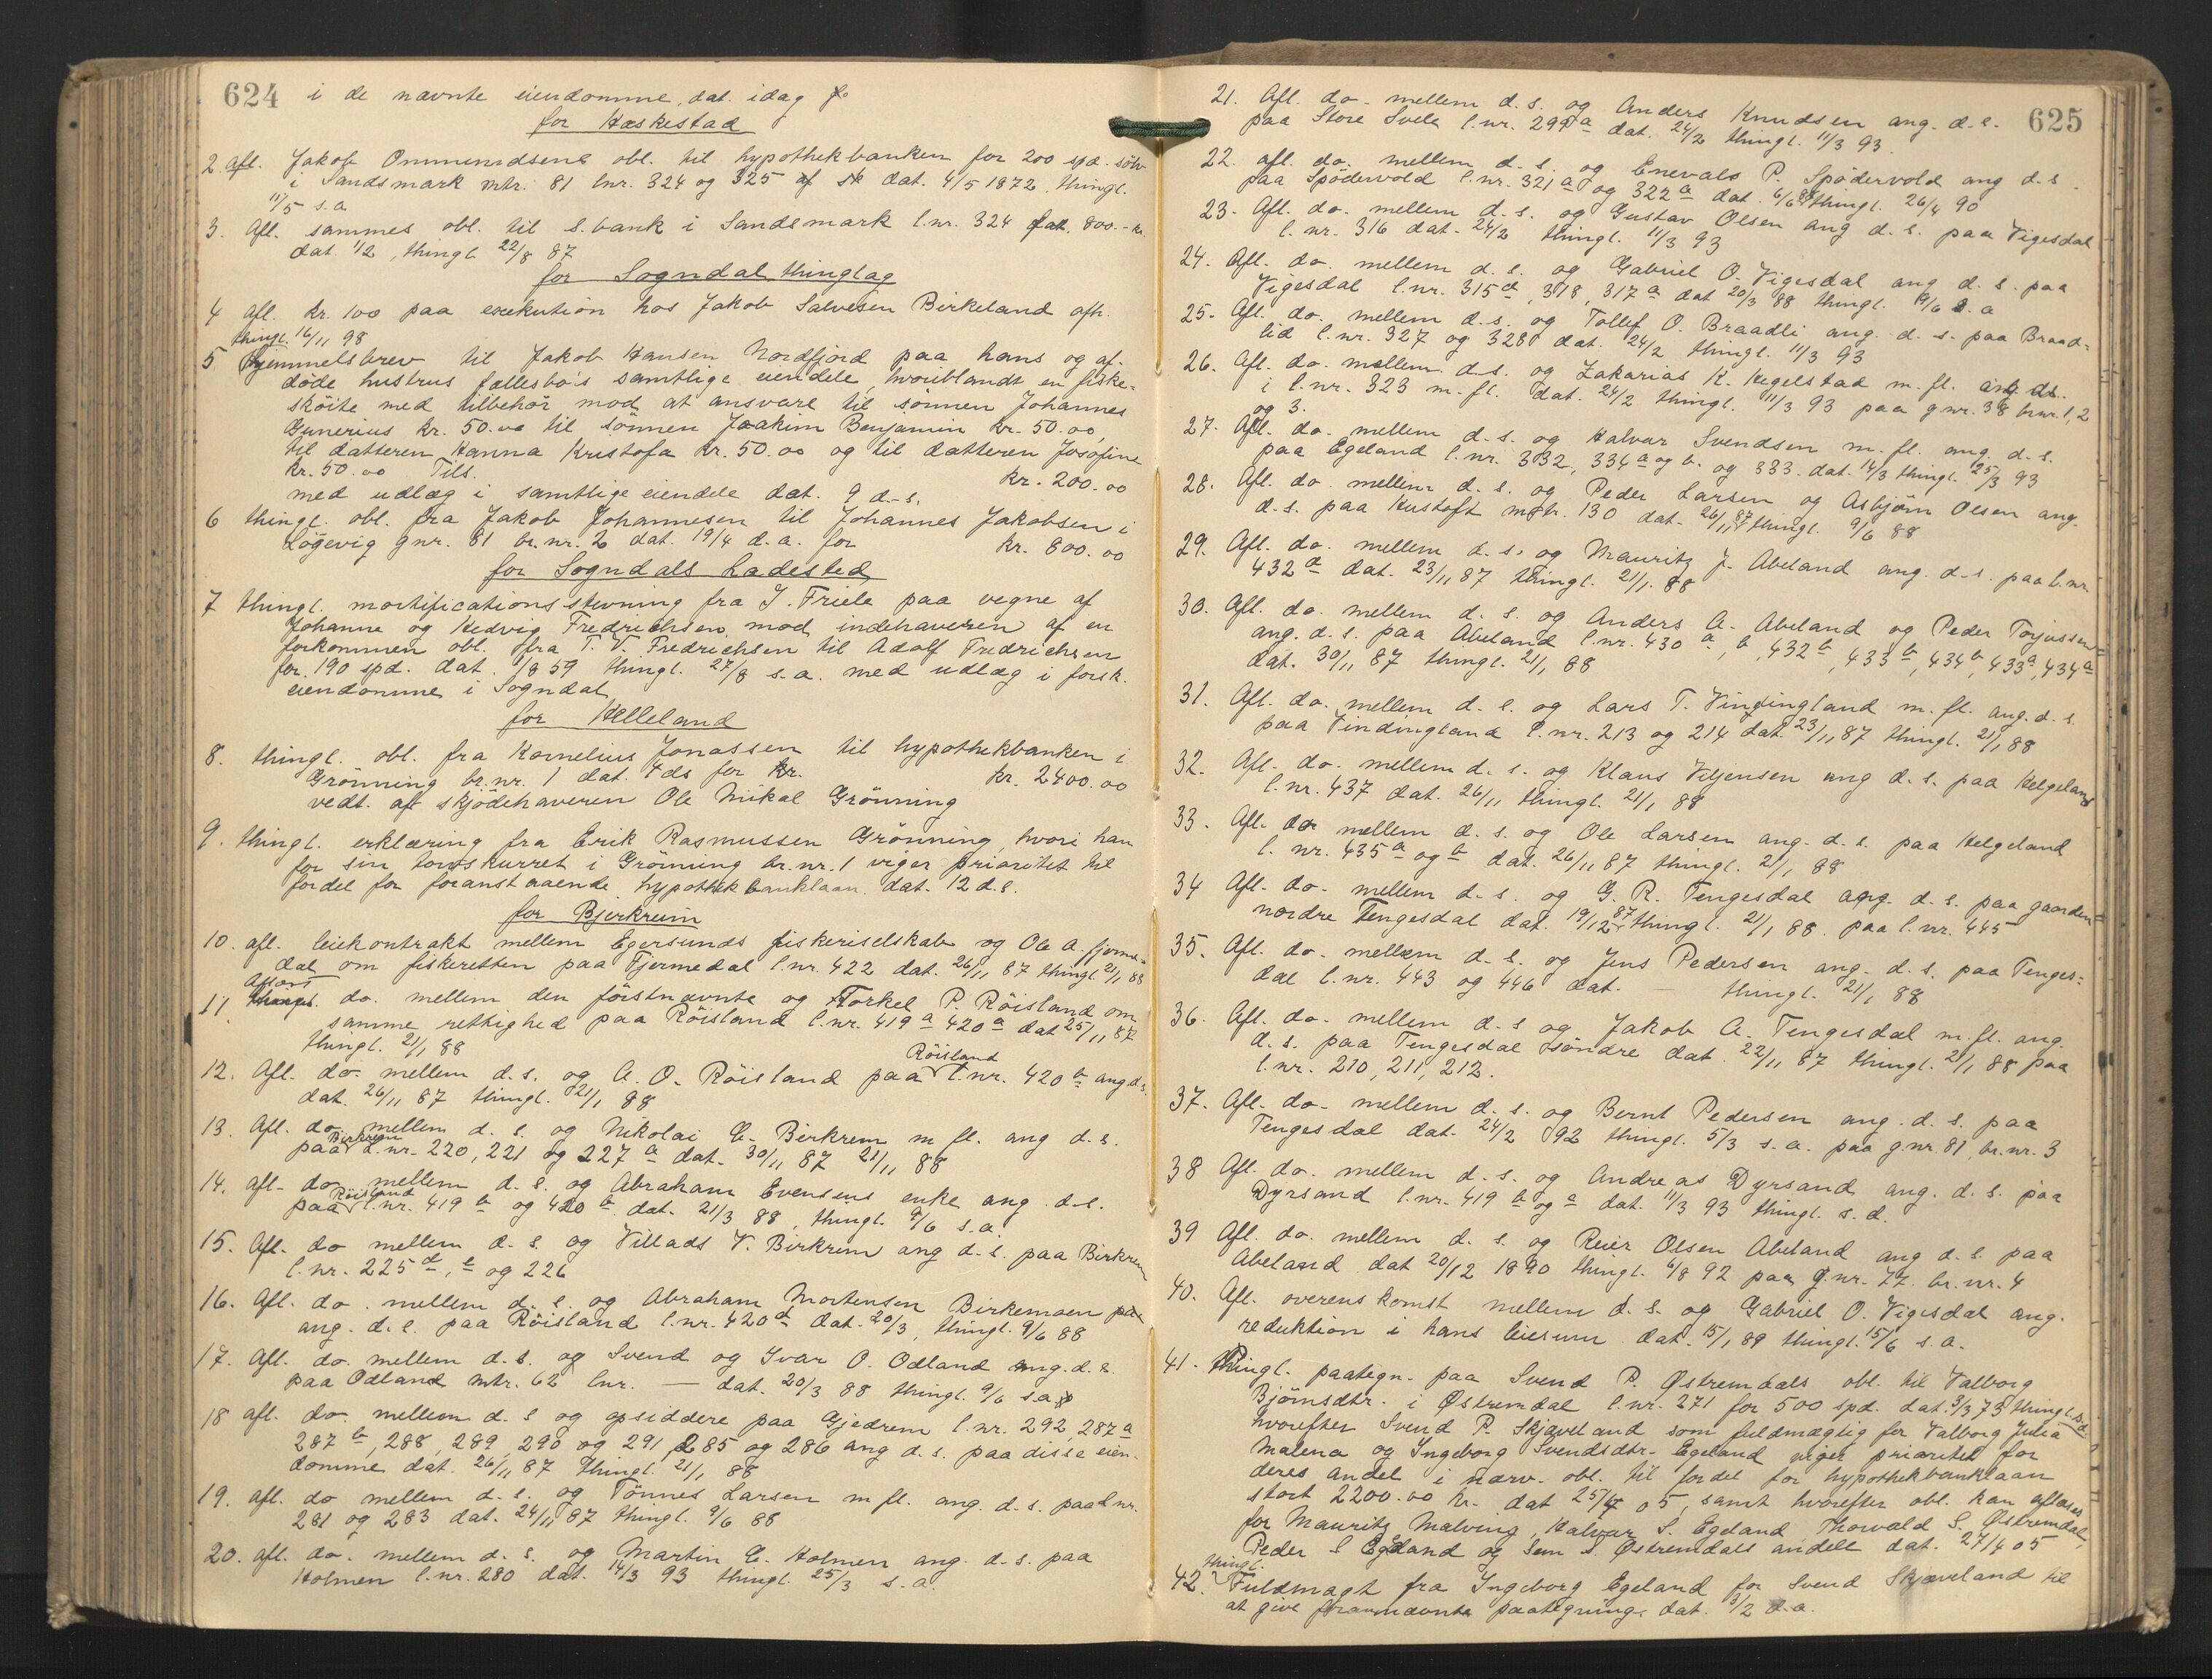 624
i de nævnte eiendomme, dat. idag
for Heskestad
2. Afl. Jakob Ommundsens obl. til hypothekbanken for 200 spd. sölv
i Sandsmark mtr. 81 lnr. 324 og 325 dat. 4/5 1872. thingl.
11/5 s.a.
3. Afl. sammes obl. til s.bank i Sandsmark l.nr. 324 800.- kr.
dat. 1/2, thingl. 22/8 87
for Sogndal thinglag
4 afl. kr. 100 paa exekution hos Jakob Salvesen Birkeland afh.
thingl. 16/11 98
5 Hjemmelsbrev til Jakob Hansen Nordfjord paa hans og af-
döde hustrus fællesbo's samtlige eiendele, hvoriblandt en fiske-
sköite med tilbehör mod at ansvare til sönnen Johannes
Gunerius kr. 50.00 til sönnen Joakim Benjamin kr. 50.00,
til datteren Hanna Kristofa kr. 50.00 og til datteren Josofine
kr. 50.00 Tils. kr. 200.00
med udlæg i samtlige eiendele dat. 9 d.s.
6 thingl. obl. fra Jakob Johannesen til Johannes Jakobsen i
Lögevig gnr. 81 br.nr. 2 dat. 19/4 d.a. for kr. 800.00
for Sogndals Ladested
7 thingl. mortificationsstevning fra J. Friele paa vegne af
Johanne og Hedvig Fredrichsen mod indehaveren af en
forkommen obl. fra T. V. Fredrichsen til Adolf Fredrichsen
for 190 spd. dat. 1/8 59 thingl. 27/8 s.a. med udlæg i forsk.
eiendomme i Sogndal
for Helleland
8. thingl. obl. fra Kornelius Jonassen til hypothekbanken i
Grönning br.nr. 1 dat. 4 ds for kr. kr. 2400.00
vedt. af skjödehaveren Ole Mikal Grönning
9. thingl. erklæring fra Erik Rasmussen Grönning, hvori han
for sin livöskurret i Grönning br.nr. 1 viger prioritet til
fordel for foranstaaende hypothekbanklaan dat. 12 d.s.
for Bjerkreim
10. afl. leiekontrakt mellem Egersunds fiskeriselskab og Ole A. Fjerme-
dal om fiskeretten paa Fjermedal l.nr. 422 dat. 26/11 87 thingl. 21/1 88
Aflæst
11 do. mellem den förstnævnte og Torkel P. Röisland om
samme rettighed paa Röisland l.nr. 419 a 420 a dat 25/11 87
thingl. 21/1 88
12. Afl. do. mellem d.s. og A. O. Röisland paa Röisland l.nr. 420 b ang. d.s.
dat. 26/11 87 thingl. 21/1 88
13. Afl. do. mellem d.s. og Nikolai E. Birkrem m fl. ang d.s.
paa Birkrem l.nr. 220, 221 og 227 a dat. 30/11 87 21/11 88
14. afl. do. mellem d.s. og Abraham Evensens enke ang. d.s.
paa Röisland l.nr. 419 b og 420 b dat. 21/3 88, thingl. 9/6 s.a.
15. Afl. do mellem d.s. og Villads V. Birkrem ang d.s. paa Birkrem
l.nr. 225 d, e og 226
16. Afl. do. mellem d.s. og Abraham Mortensen Birkemoen paa
ang. d.s. paa Röisland l.nr. 420 d dat. 20/3, thingl. 9/6 88
17. Afl. do. mellem d.s. og Svend og Ivar O. Odland ang. d.s.
paa Odland mtr. 62 lnr. — dat. 20/3 88 thingl. 9/6 s.a.
18 afl. do. mellem d.s og opsiddere paa Gjedrem l.nr. 292, 287 a
287 b, 288, 289, 290 og 291, 285 og 286 ang d.s. paa disse eien-
domme dat. 26/11 87 thingl. 21/1 88
19. afl. do mellem d.s. og Tönnes Larsen m fl. ang. d.s. paa l.nr.
281 og 283 dat. 24/11 87 thingl. 9/6 88
20. afl. do. mellem d.s. og Martin E. Holmen ang. d.s. paa
Holmen l.nr. 280 dat. 14/3 93 thingl. 25/3 s.a.
625
21. Afl. do. mellem d.s. og Anders Knudsen ang. d.s.
paa Store Svela l.nr. 299 a dat. 24/2 thingl. 11/3 93.
22. afl. do. mellem d.s. og Enevald P. Spödervold ang d.s.
paa Spödervold l.nr. 321 a og 322 a dat. 6/6 89 thingl. 26/4 90
23. Afl. do. mellem d.s. og Gustav Olsen ang d.s. paa Vigesdal
l.nr. 316 dat. 24/2 thingl. 11/3 93
24. Afl. do. mellem d.s. og Gabriel O. Vigesdal ang d.s. paa
Vigesdal l.nr. 315 d, 318, 317 a dat 20/3 88 thingl. 9/6 s.a
25. Afl. do. mellem d.s. og Tollef O. Braadli ang. d.s. paa Braad-
lid l.nr. 327 og 328 dat. 24/2 thingl. 11/3 93
26. Afl. do. mellem d.s. og Zakarias K. Hegelstad m.fl. ang ds.
i l.nr. 323 m.fl. dat. 24/2 thingl. 11/3 93 paa gnr. 38 brnr. 1, 2
og 3.
27. Afl. do. mellem d.s. og Halvar Svendsen m.fl. ang. d.s.
paa Egeland l.nr. 332, 334 a og b. og 333. dat. 14/3 thingl. 25/3 93
28. Afl. do. mellem d.s. og Peder Larsen og Asbjörn Olsen ang.
d.s. paa Hustoft mtr. 130 dat. 26/11 87 thingl. 9/6 88
29. Afl. do. mellem d.s. og Mauritz J. Abeland ang. d.s. paa l.nr.
432 a dat. 23/11 87 thingl. 21/1. 88
30. Afl. do. mellem d.s. og Anders A. Abeland og Peder Torjussen
ang. d.s. paa Abeland l.nr. 430 a, b, 432 b, 433 b, 434 b, 433 a, 434 a
dat. 30/11 87 thingl. 21/1 88
31. Afl. do. mellem d.s. og Lars T. Vindingland m.fl. ang. d.s.
paa Vindingland l.nr. 213 og 214 dat. 23/11 87 thingl. 21/1 88
32. Afl. do. mellem d.s. og Klaus Viljensen ang d.s. paa Helgeland
l.nr. 437 dat. 26/11 thingl. 21/1 88
33. Afl. do mellem d.s. og Ole Larsen ang. d.s. paa Helgeland
l.nr. 435 a og b dat. 26/11 87 thingl. 21/1 88
34 Afl. do. mellem d.s. og G. R. Tengesdal ang. d.s. paa gaarden
nordre Tengesdal dat. 19/12 87 thingl. 21/1 88. paa l.nr. 445
35. Afl. do. mellem d.s. og Jens Pedersen ang. d.s. paa Tenges-
dal l.nr. 443 og 446 dat. — thingl. 21/1 88
36. Afl. do. mellem d.s og Jakob A. Tengesdal m.fl. ang.
d.s. paa Tengesdal söndre dat. 22/11 87 thingl. 21/1 88 paa
l.nr. 210, 211, 212.
37. Afl. do. mellem d.s. og Bernt Pedersen ang. d.s. paa
Tengesdal dat. 24/2 92 thingl. 5/3 s.a. paa g.nr. 81, br.nr. 3
38 Afl. do. mellem d.s. og Andreas Dyrsand ang. d.s. paa
Dyrsand l.nr. 419 b og a dat. 11/3 93 thingl. s.d.
39 Afl. do. mellem d.s. og Reier Olsen Abeland ang d.s. paa
Abeland dat 20/12 1890 thingl. 6/8 92 paa g.nr. 77. br.nr. 4
40. Afl. overenskomst mellem d.s. og Gabriel O. Vigesdal ang.
reduktion i hans leiesum dat. 15/1 89 thingl. 15/6 s.a.
41. thingl. paategn. paa Svend P. Østremdals obl. til Valborg
Bjömsdtr. i Østremdal l.nr. 271 for 500 spd. dat. 3/3 73 thingl. s.d.
hvorefter Svend P. Skjæveland som fuldmægtig for Valborg Julia
Malena og Ingeborg Svendsdtr. Egeland viger prioritet for
deres andel i nærv. obl. til fordel for hypothekbanklaan
stort 2200.00 kr. dat 25/4 05, samt hvorefter obl. kan aflæses
for Mauritz Malving, Halvar S. Egeland Thorvald S. Østremdal,
Peder S Egeland og Sem S. Østremdals andele dat. 27/4 05
42. thingl. Fuldmagt fra Ingeborg Egeland for Svend Skjæveland til
at give forannævnte paategning. dat. 3/2 d.a.